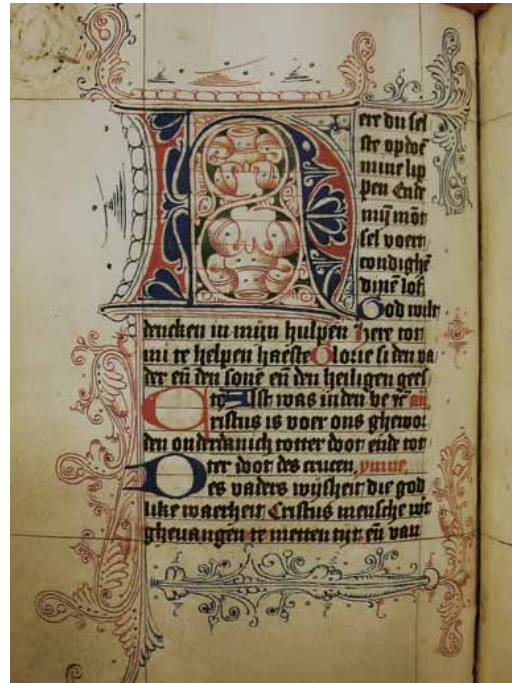 H
ere du sel
ste opdoē
mine lip
pen Ende
mij mōt
sel voert
condighē
dinē lof.
God wilt
dencken in mijn hulpen here tot
mi te helpen haeste Glorie si den va
der eñ den sonē eñ den heiligen gees
te Alst was in den be
Cristus is voer ons ghewor
den onderdanich totter doot ende tot
ter doot des crucen. ymne.
Des vaders wijsheit die god
like waerheit Cristus mensche wt
ghevangen te metten tijt eñ van